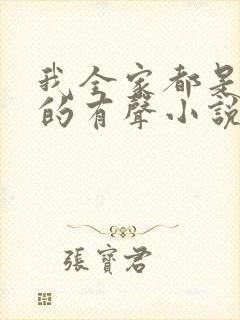 我全家都是
的有聲小說
張寶君